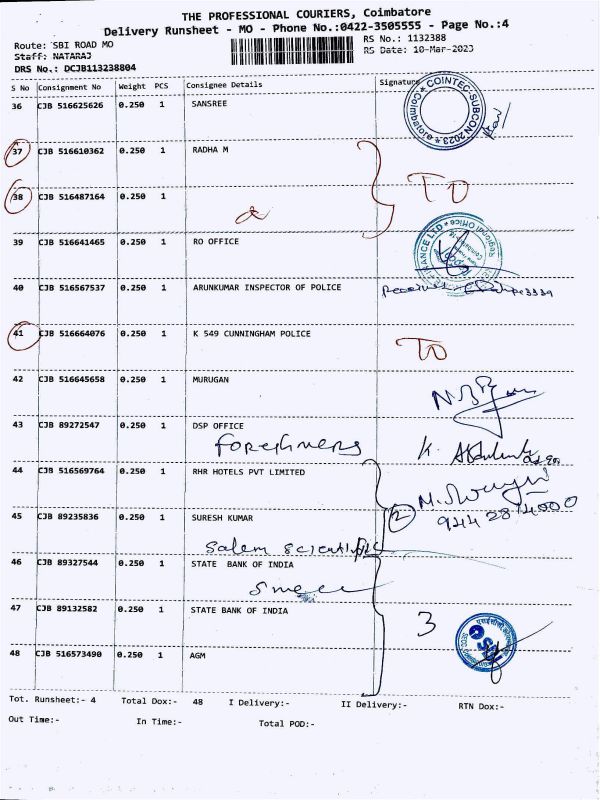 THE PROFESSIONAL COURIERS, Coimbatore
Delivery Runsheet - MO - Phone No.:0422-3505555 - Page No.:4
Route: SBI ROAD MO
RS No.: 1132388
Staff: NATARAJ
RS Date: 10-Mar-2023
DRS No.: DCJB113238804
S No Consignment No Weight PCS Consignee Details Signature
COINTEC-SUBCON 2023 Coimbatore
36 CJB 516625626 0.250 1 SANSREE
37 CJB 516610362 0.250 1 RADHA M
TO
38 CJB 516487164 0.250 1
39 CJB 516641465 0.250 1 RO OFFICE
40 CJB 516567537 0.250 1 ARUNKUMAR INSPECTOR OF POLICE
41 CJB 516664076 0.250 1 K 549 CUNNINGHAM POLICE
TO
42 CJB 516645658 0.250 1 MURUGAN
43 CJB 89272547 0.250 1 DSP OFFICE
foreshners
44 CJB 516569764 0.250 1 RHR HOTELS PVT LIMITED
2
45 CJB 89235836 0.250 1 SURESH KUMAR
Salem scientific
46 CJB 89327544 0.250 1 STATE BANK OF INDIA
47 CJB 89132582 0.250 1 STATE BANK OF INDIA
3
48 CJB 516573490 0.250 1 AGM
Tot. Runsheet:- 4 Total Dox:- 48 I Delivery:- II Delivery:- RTN Dox:-
Out Time:- In Time:- Total POD:-